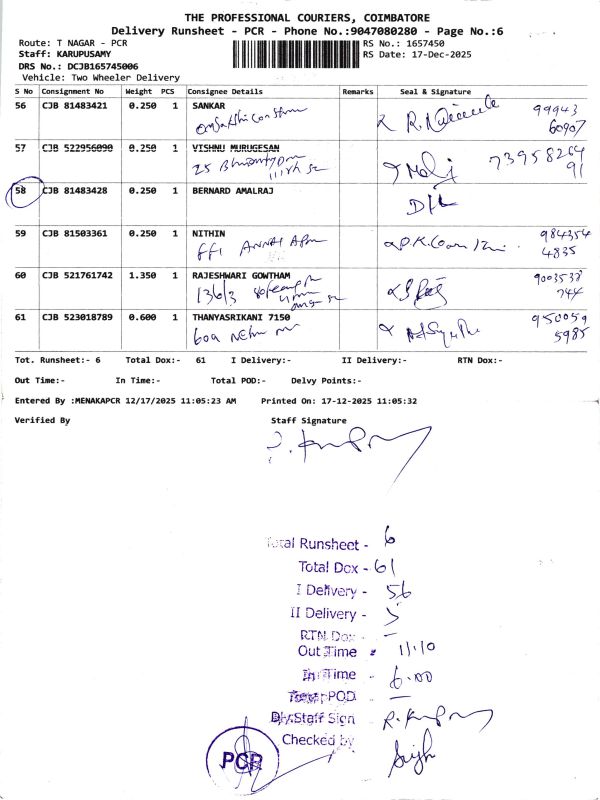 THE PROFESSIONAL COURIERS, COIMBATORE
Delivery Runsheet - PCR - Phone No.:9047080280 - Page No.:6
Route: T NAGAR - PCR
RS No.: 1657450
Staff: KARUPUSAMY
RS Date: 17-Dec-2025
DRS No.: DCJB165745006
Vehicle: Two Wheeler Delivery
S No Consignment No Weight PCS Consignee Details Remarks Seal & Signature
56 CJB 81483421 0.250 1 SANKAR
99943
60907
57 CJB 522956090 0.250 1 VISHNU MURUGESAN
73958264
91
58 CJB 81483428 0.250 1 BERNARD AMALRAJ
D/L
59 CJB 81503361 0.250 1 NITHIN
984354
4835
60 CJB 521761742 1.350 1 RAJESHWARI GOWTHAM
9003538
744
136/3
61 CJB 523018789 0.600 1 THANYASRIKANI 7150
60A Nehru
950059
5985
Tot. Runsheet:- 6 Total Dox:- 61 I Delivery:- II Delivery:- RTN Dox:-
Out Time:- In Time:- Total POD:- Delvy Points:-
Entered By :MENAKAPCR 12/17/2025 11:05:23 AM Printed On: 17-12-2025 11:05:32
Verified By Staff Signature
Total Runsheet - 6
Total Dox - 61
I Delivery - 56
II Delivery - 5
RTN Dox - –
Out Time - 11.10
In Time - 6.00
Total POD - –
Dly.Staff Sign -
Checked by
PCR